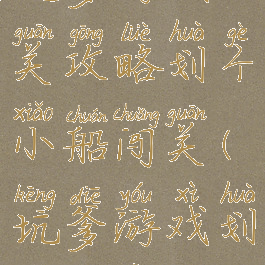 guān gōng lüè huà gè
关攻略划个
xiǎo chuán chuǎng guān
小船闯关(
kēng diē yóu xì huà
坑爹游戏划